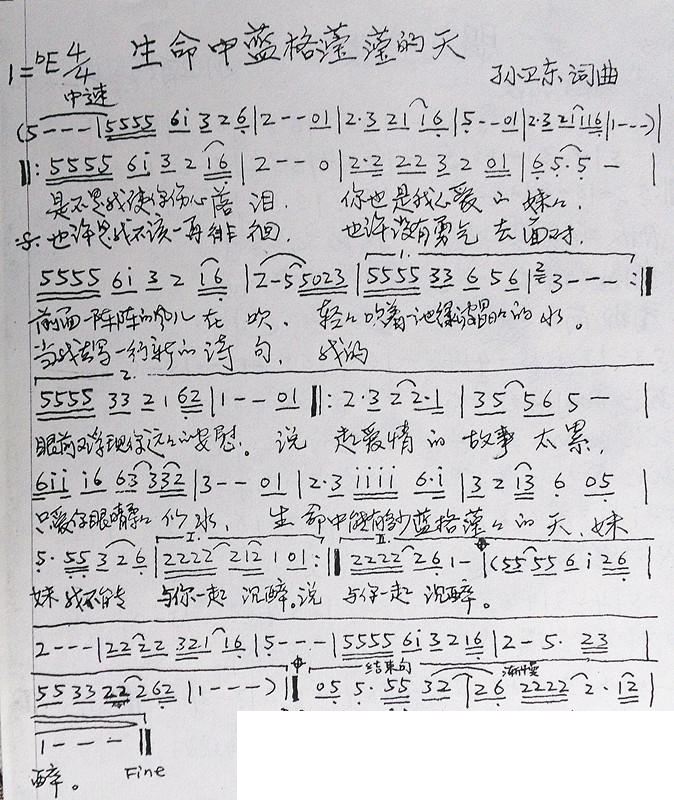 生命中蓝格莹莹的天
1=bE 4/4
孙卫东词曲
中速
(5 - - - | 5555 6i 3 2 6 | 2 - - 01 | 2·3 21 16 | 5 - - 01 | 2·3 21116 | 1 - - - ) |
‖: 5555 6i 3 2 16 | 2 - - 0 | 2·2 22 3 2 01 | 6 5·5 - |
是不是我使你伤心落泪. 你也是我心爱的妹妹.
也许是我不该一再徘徊. 也许没有勇气去面对.
5555 6i 3 2 16 | 2-5 5023 | 5555 33 6 56 | 3 - - - :‖
1.
前面一阵阵的风儿在吹、轻轻吹着一池绿波晶晶的水。
当我写一行新的诗句、我的
2.
5555 33 2 1 62 | 1 - - 01 ‖: 2·3 2 2·1 | 35 56 5 - |
眼前又浮现你远远的安慰。说起爱情的故事太累,
6ii i6 63 332 | 3 - - 01 | 2·3 iiii 6·i | 3 2 13 6 05 |
只爱你眼睛柔柔似水, 生命中能有多少蓝格莹莹的天、妹
I. II.
5· 55 3 2 6 | 2222 212 1 01 :‖ 2222 26 1 - | (55 55 6 i 26 |
妹我不能 与你一起沉醉。说 与你一起沉醉。
2 - - - | 22 22 321 16 | 5 - - - | 5555 6i 3216 | 2 - 5· 23 |
结束句 渐慢
55 33 22 262 | 1 - - - ) ‖ 05 5· 55 32 | 26 2222 2· 12 |
1 - - - ‖
醉。 Fine